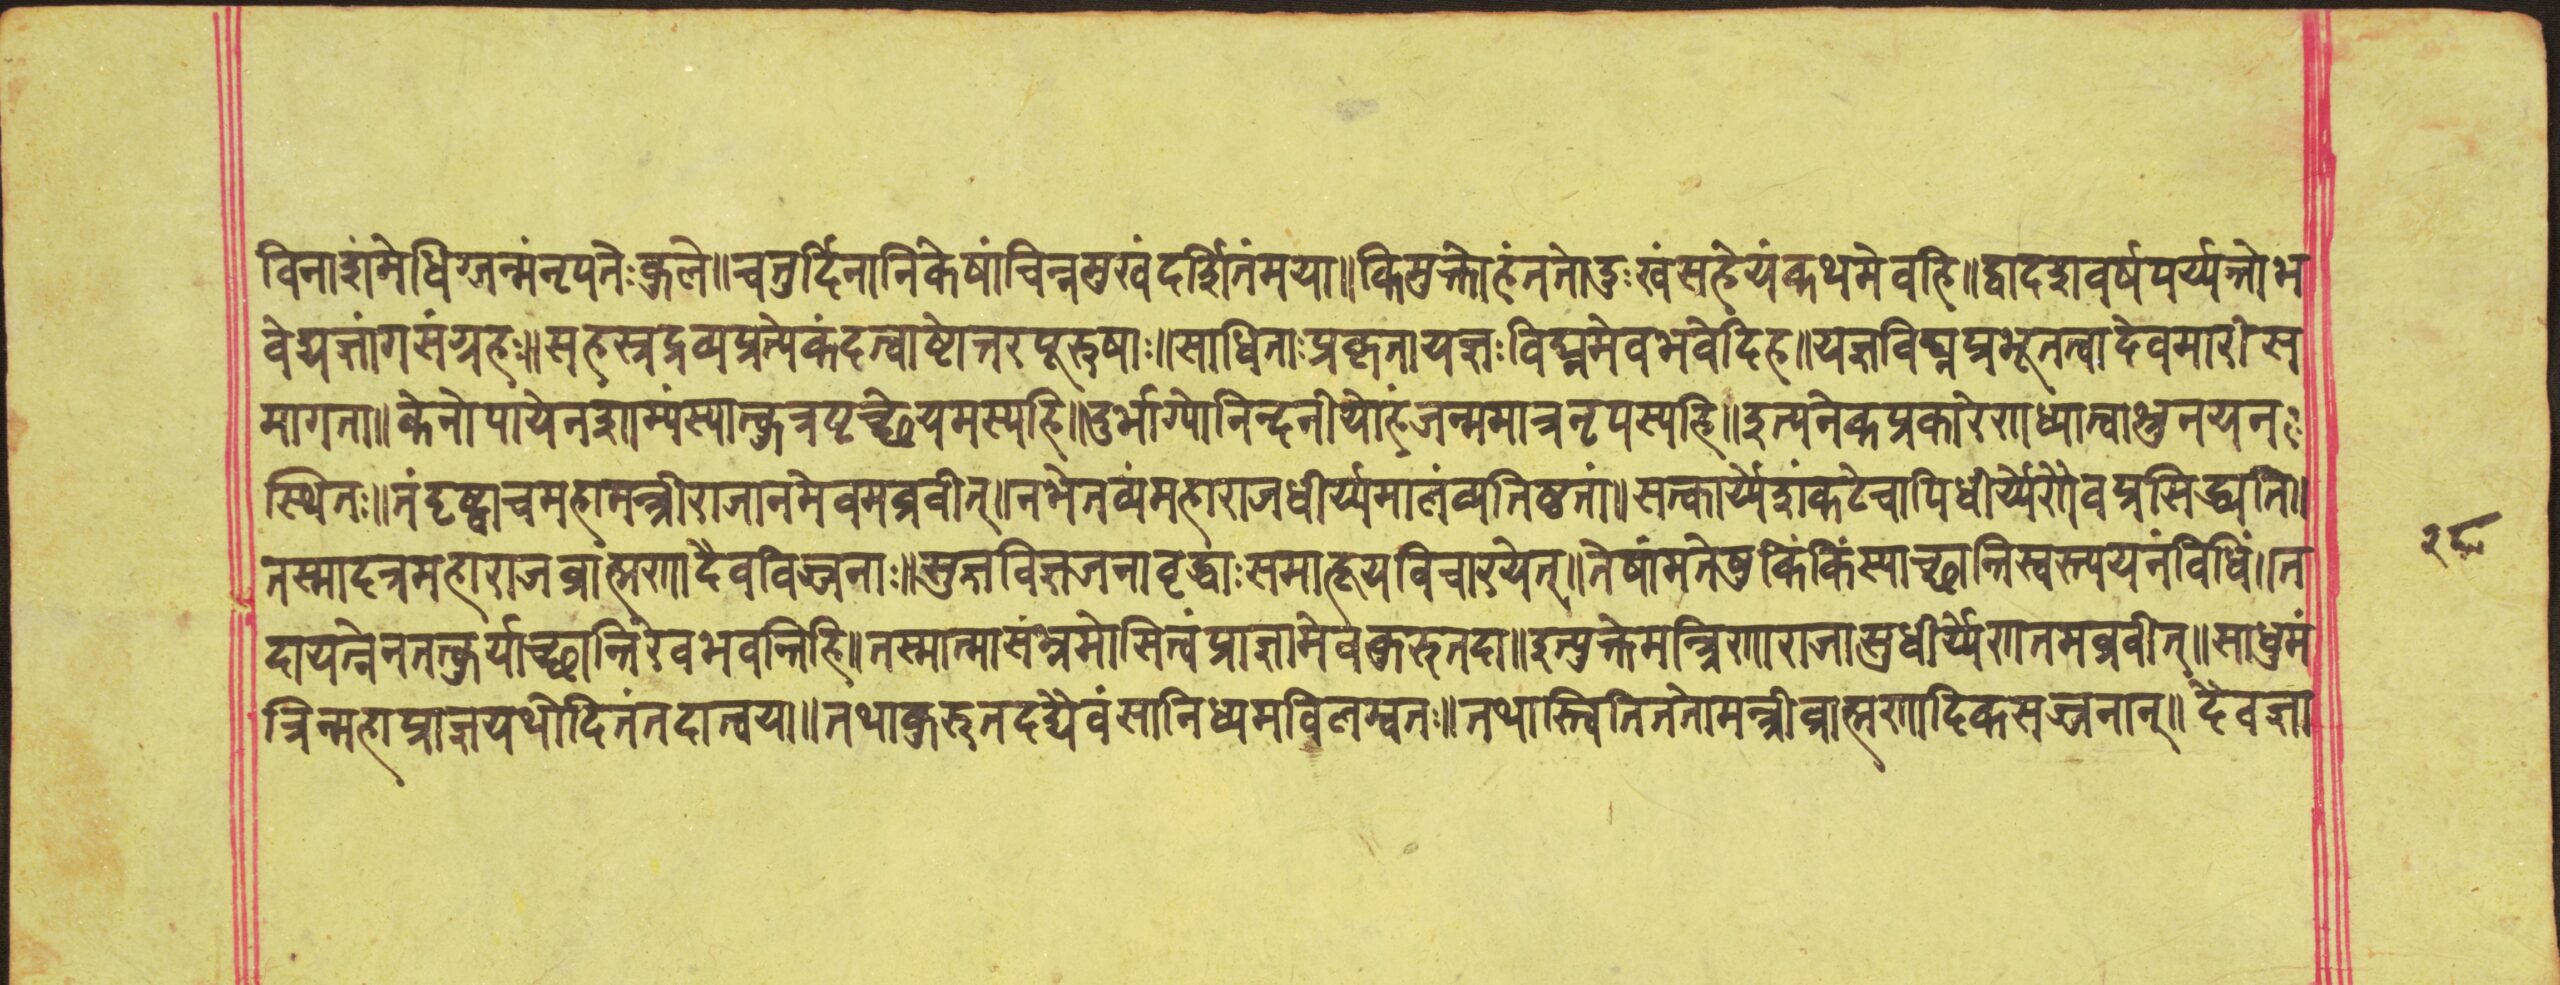 विनाशंमेधिग्जन्मंनृपतेःकुले॥चतुर्दिनानिकेषांचिन्नमुखंदर्शितंमया॥किमुक्तोहंततोदुःखंसहेयंकथमेवहि॥द्वादशवर्षपर्य्यन्तोभ
वेद्यज्ञांगसंग्रहः॥सहस्रद्रव्यप्रत्येकंदत्वाष्टोत्तरपूरुषाः॥साधिताःप्रकृतायज्ञःविघ्नमेवभवेदिह॥यज्ञविघ्नप्रभूतत्वादेवमारीस
मागता॥केनोपायेनशाम्यंस्यात्कुत्रपृच्छेयमस्यहि॥दुर्भाग्योनिन्दनीयोहंजन्ममात्रनृपस्यहि॥इत्यनेकप्रकारेणध्यात्वाश्रुनयनः
स्थितः॥तंदृष्ट्वाचमहामन्त्रीराजानमेवमब्रवीत्॥नभेतव्यंमहाराजधीर्य्यमालंव्यतिष्ठतां॥सत्कार्य्येशंकटेचापिधीर्य्येणैवप्रसिद्ध्यति॥
तस्मादत्रमहाराजब्रांह्मणादैवविज्जनाः॥सुज्ञविज्ञजनावृद्धाःसमाहूयविचारयेत्॥तेषांमतेषुकिंकिंस्याच्छान्तिस्वस्त्ययनंविधिं॥त
दायत्नेनतत्कुर्याच्छान्तिरेवभवन्तिहि॥तस्मात्मासंभ्रमोसित्वंप्राज्ञामेवकुरुतदा॥इत्युक्तेमन्त्रिणाराजासुधीर्य्येणतमब्रवीत्॥साधुमं
त्रिन्महाप्राज्ञयथोदितंतदात्वया॥तथाकुरुतदद्यैवंसानिध्यमविलम्वतः॥तथास्त्वितिततोमन्त्रीब्राह्मणादिकसज्जनान्॥दैवज्ञा
२८